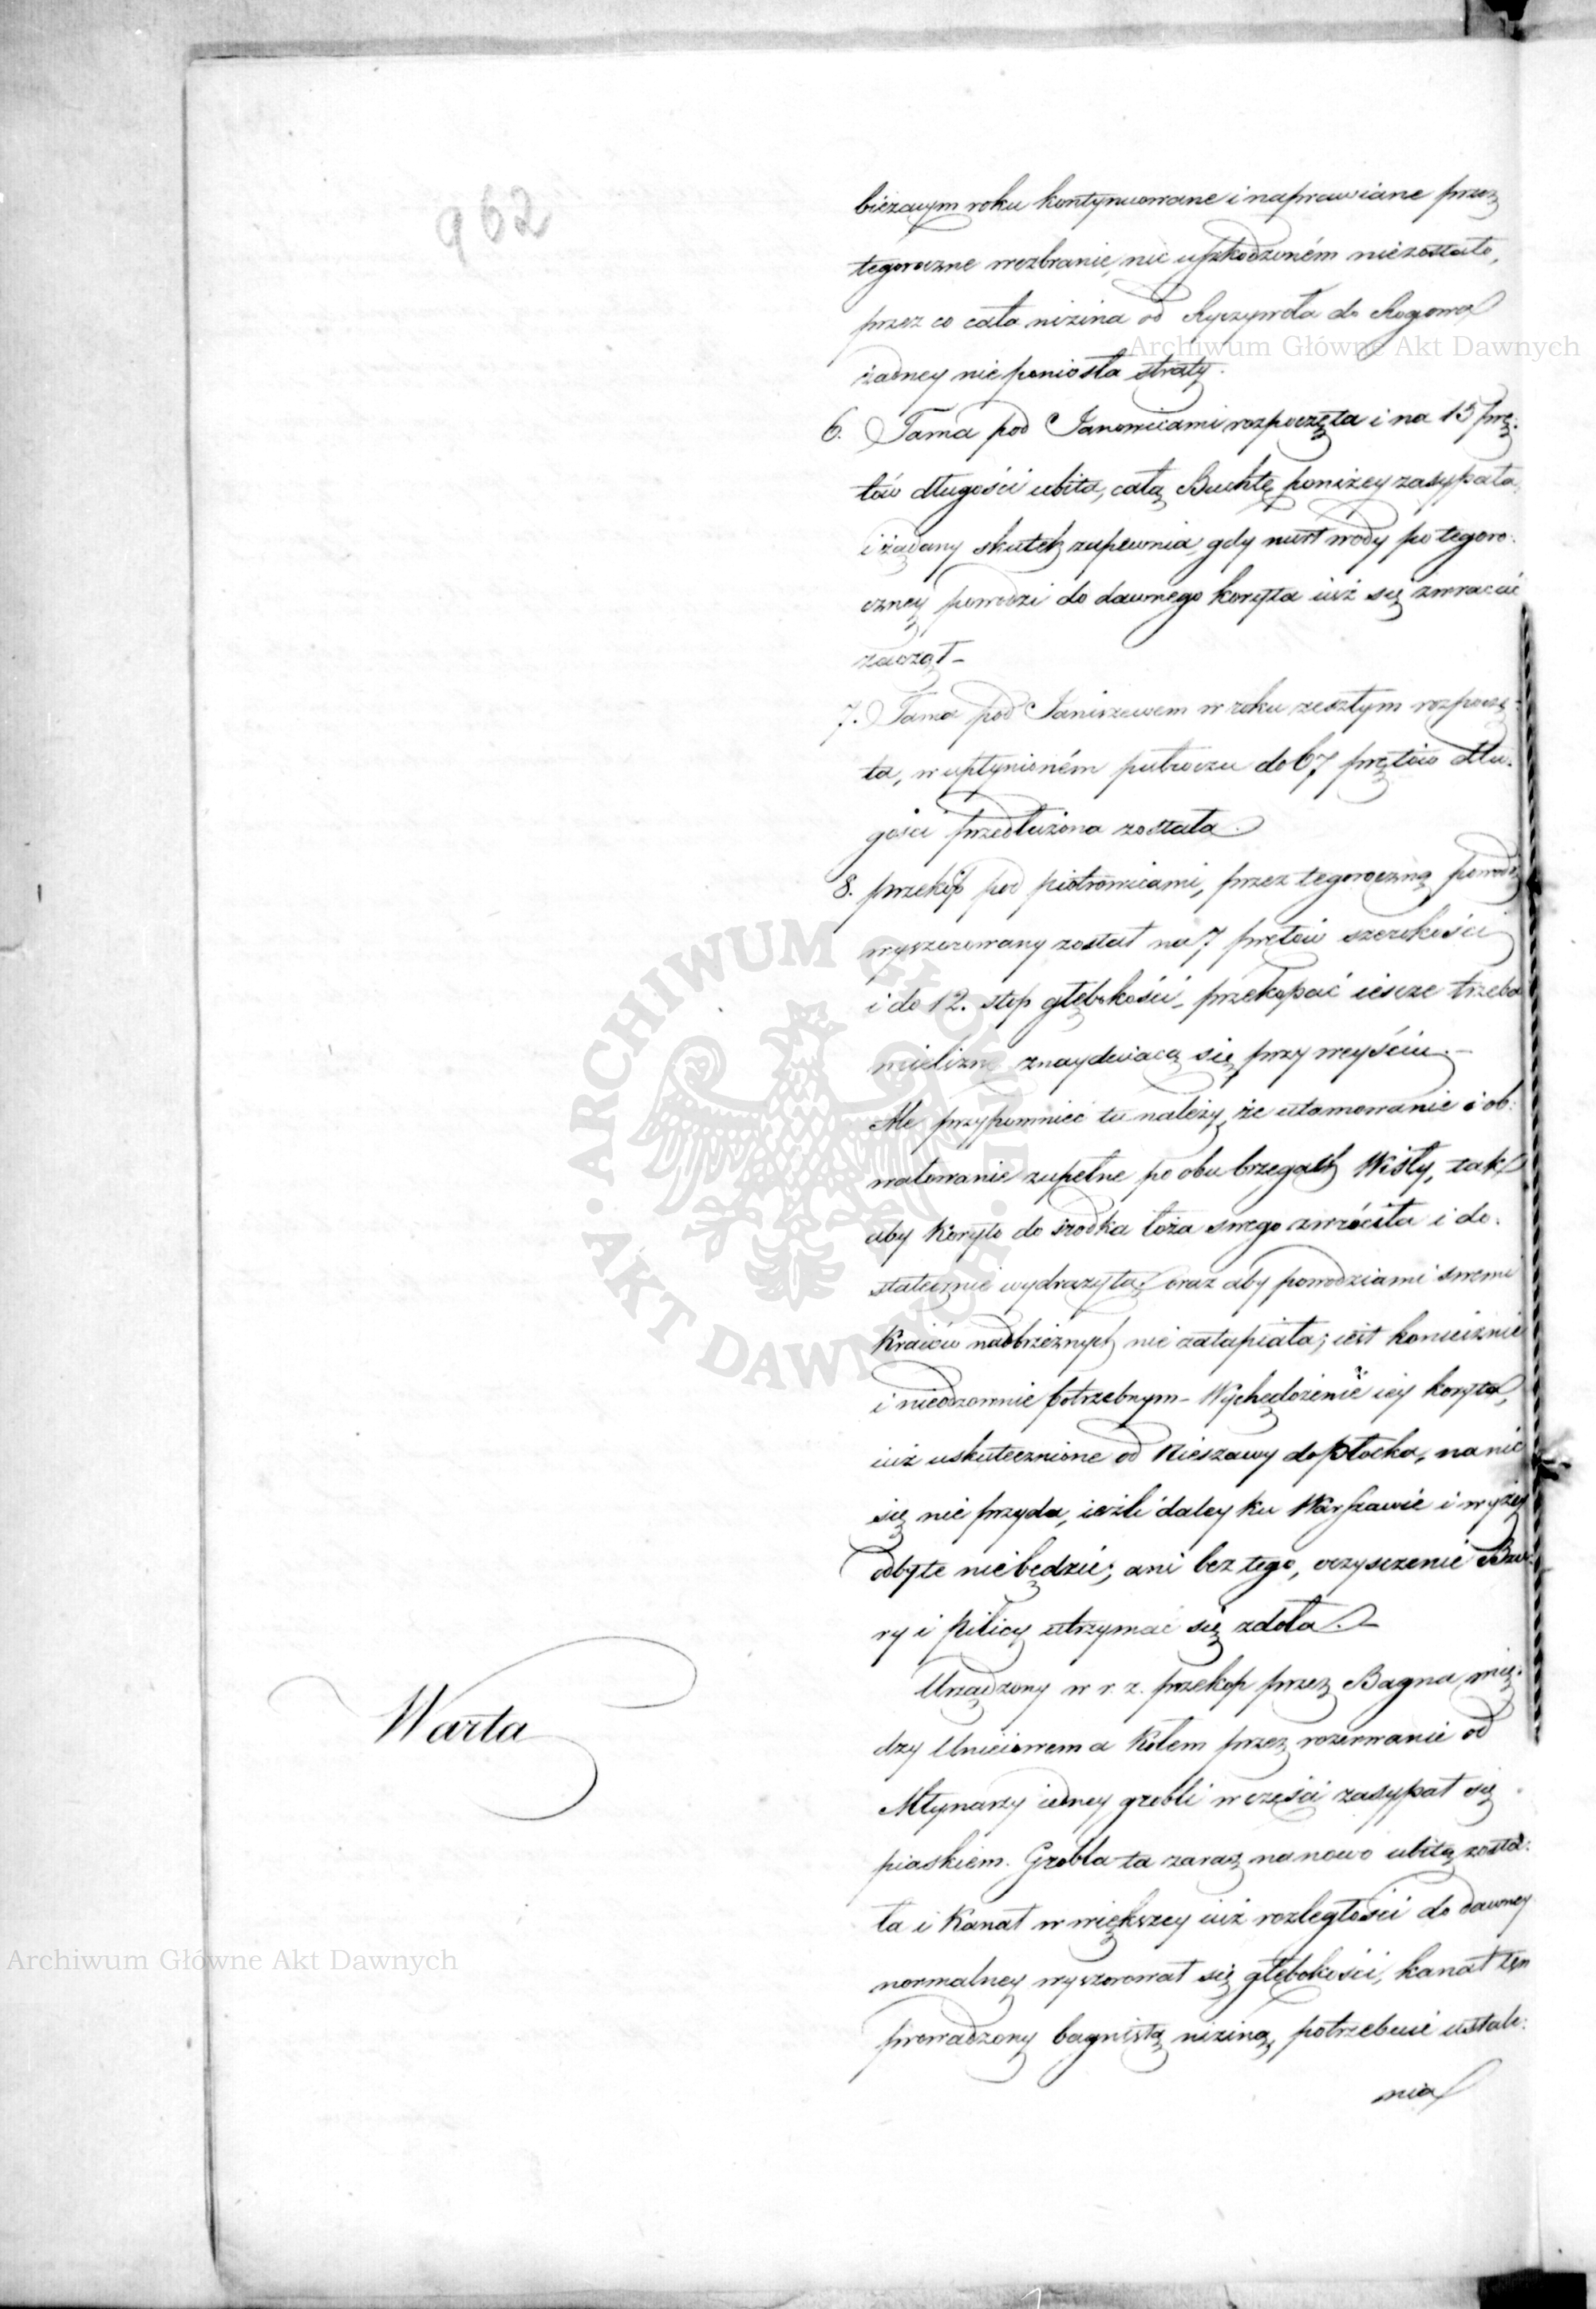 962
bieżącym roku kontynuowane i naprawiane przez
tegoroczne wezbranie, nic uszkodzoném niezostało,
przez co cała nizina od Ryczywoła do Rogowa
żadney nieponiosła straty.
6. Tama pod Janowicami rozpoczęta i na 15 prę-
tów długości ubita, całą Buchtę poniżey zasypała,
i żądany skutek zapewnia, gdy nurt wody po tegoro-
czney powodzi do dawnego koryta iuż się zwracać
zaczął –
7. Tama pod Janiszewem w roku zeszłym rozpoczę-
ta, w upłynioném półroczu do 67 prętów dłu-
gości przedłużona została.
8. przekop pod piotrowicami, przez tegoroczną powodź
wyszorowany został na 7 prętów szerokości
i do 12. stop głębokości – przekopać iescze trzeba
mieliznę znayduiącą się przy weyściu. –
Ale przypomnieć tu należy, że utamowanie i ob-
wałowanie zupełne po obu brzegach Wisły, tak
aby koryto do środka łoża swego zwróciła i do-
statecznie wydrążyła, oraz aby powodziami swemi
Kraiów nadbrzeżnych nie zatapiała; iest koniecznie
i nieodzownie potrzebnym – Wychędożenie iey koryta,
iuż uskutecznione od Nieszawy do płocka, na nic
się nie przyda, ieżli daley ku Warszawie i wyżey
odbyte niebędzie; ani bez tego, oczysczenie Bzu-
ry i Pilicy utrzymać się zdoła. –
Warta
Urządzony w r. z. przekop przez Bagna mię-
dzy Unieiowem a Kołem przez rozerwanie od
Młynarzy iedney grobli w części zasypał się
piaskiem. Grobla ta zaraz na nowo ubitą zosta-
ła i Kanał w większey iuż rozległości do dawney
normalney wyszorował się głębokości, kanał ten
prowadzony bagnistą niziną, potrzebuie ustale-
nia
Archiwum Główne Akt Dawnych
Archiwum Główne Akt Dawnych
ARCHIWUM GŁÓWNE AKT DAWNYCH